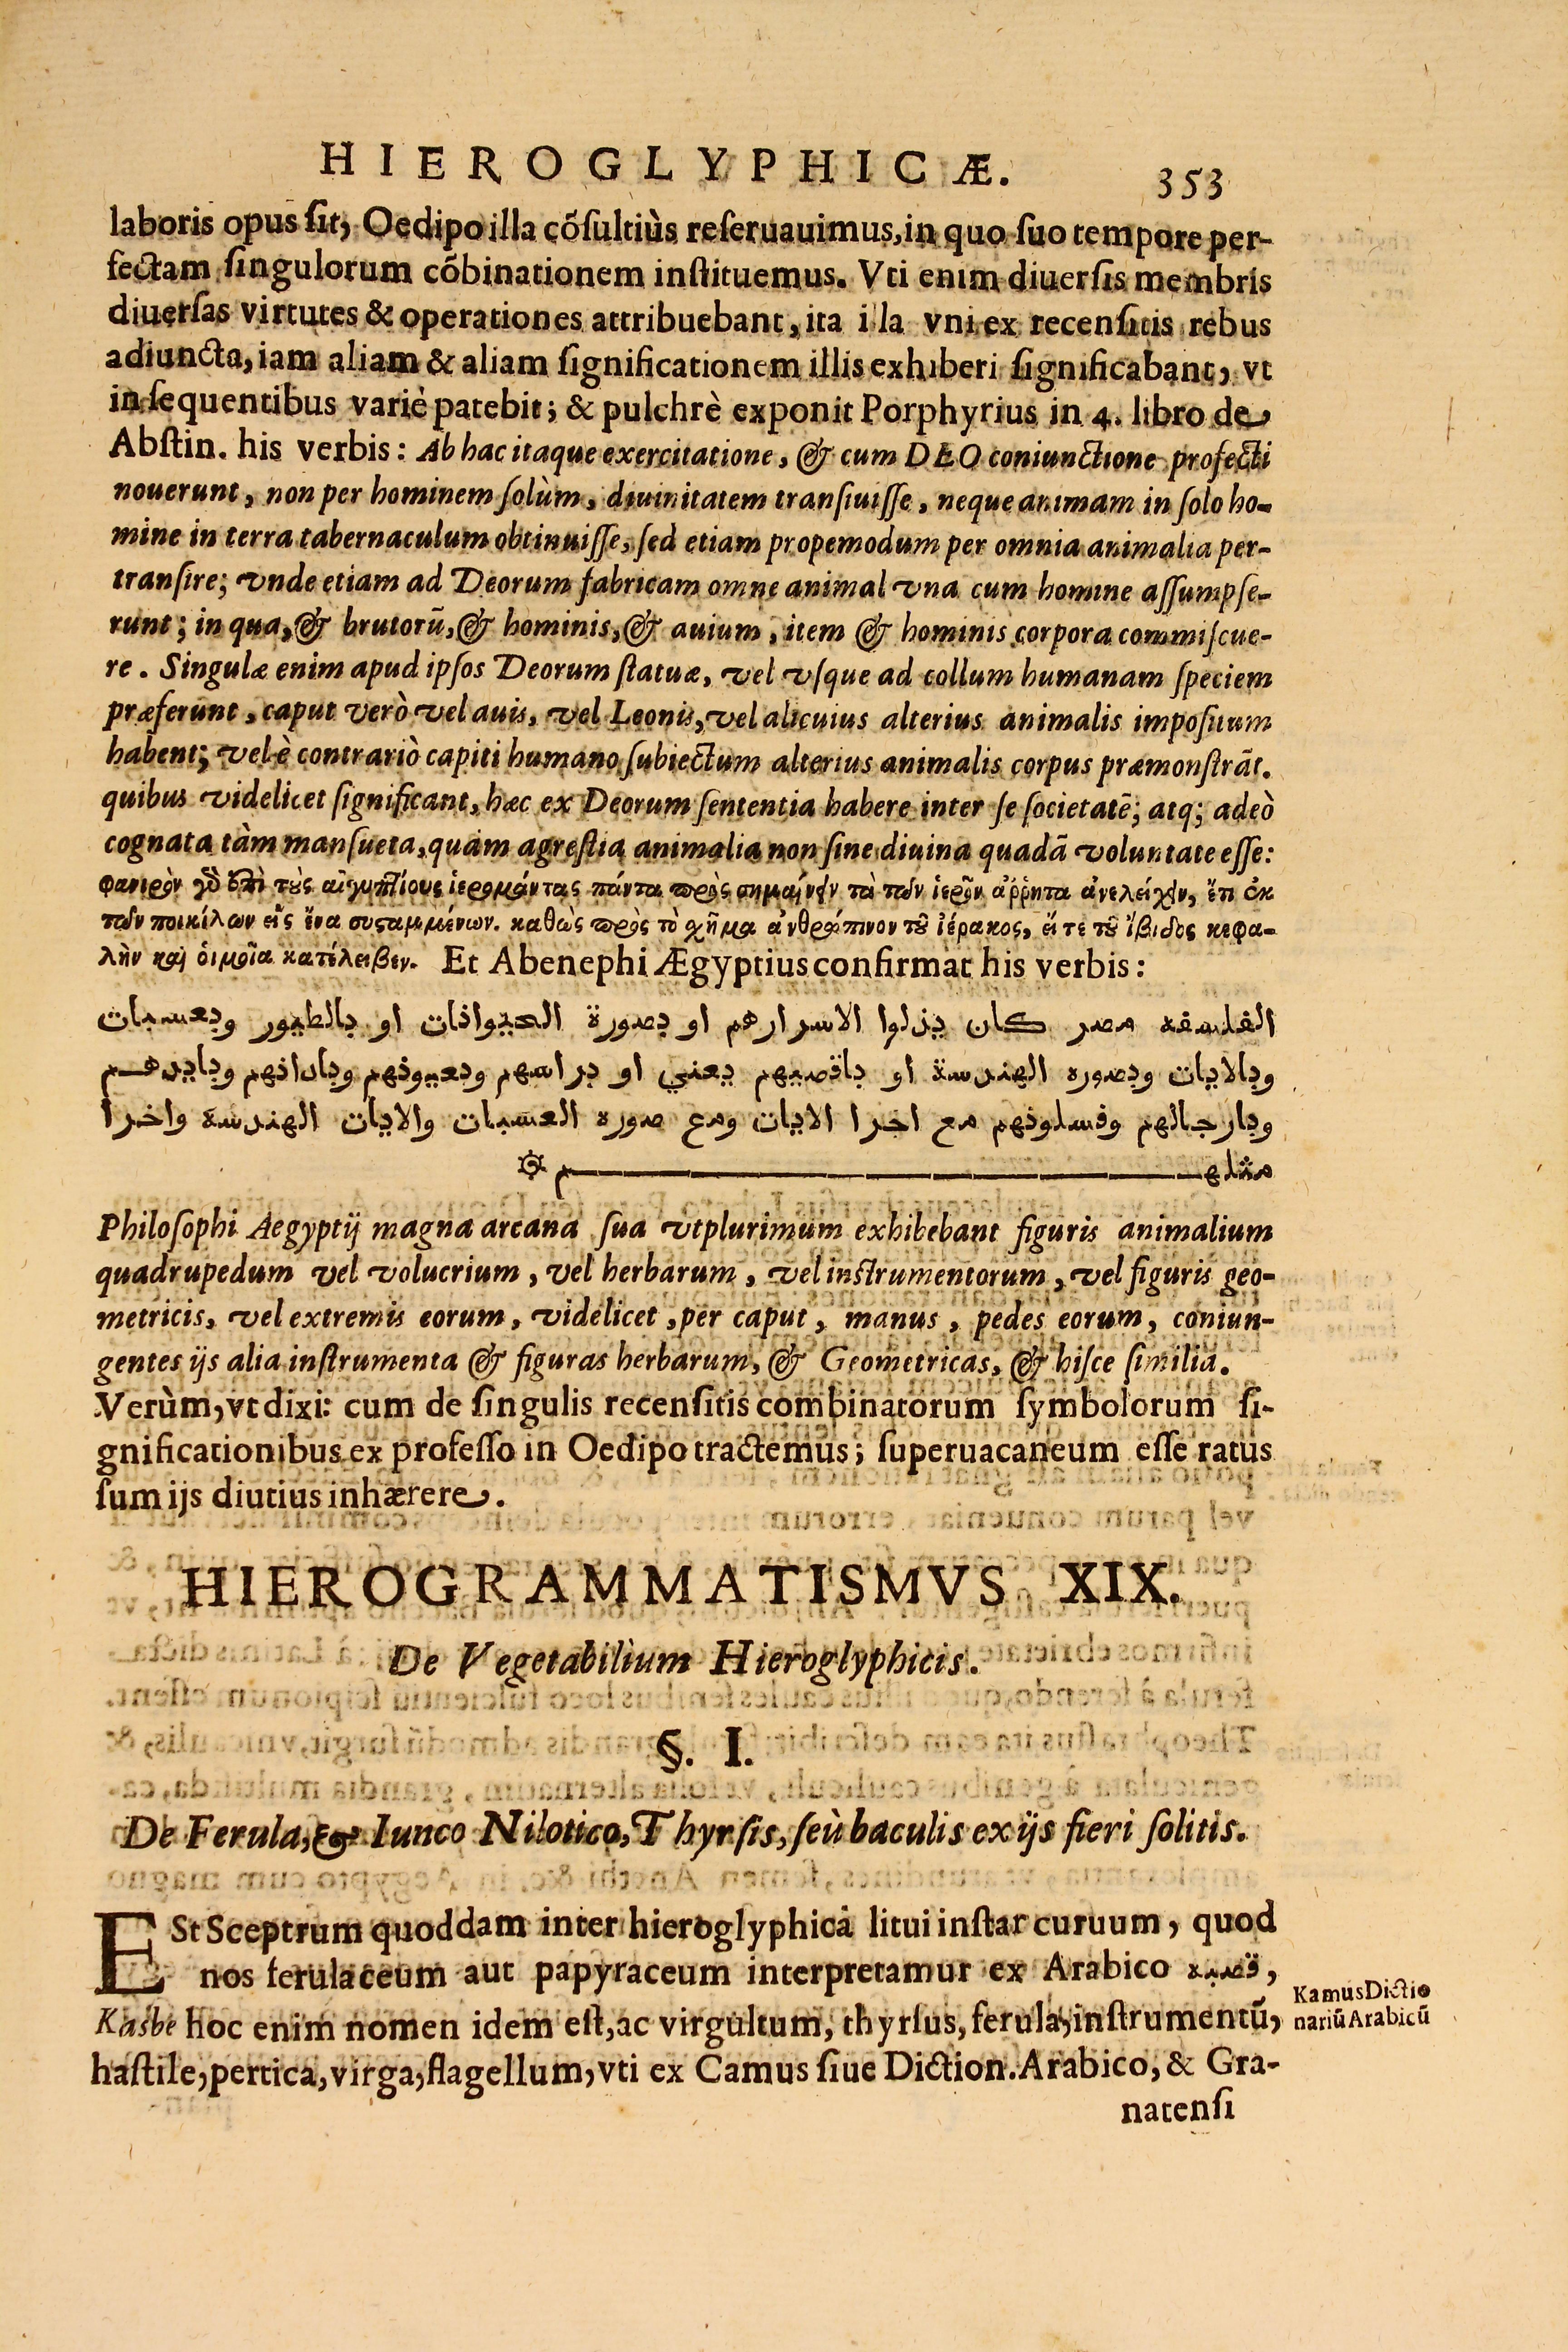 HIEROGLYPHICÆ. 353
laboris opus ſit, Oedipo illa cõſultiùs reſeruauimus, in quo ſuo tempore per-
fectam ſingulorum cõbinationem inſtituemus. Vti enim diuerſis membris
diuerſas virtutes & operationes attribuebant, ita i la vni ex recenſitis rebus
adiuncta, iam aliam & aliam ſignificationem illis exhiberi ſignificabant, vt
in ſequentibus variè patebit; & pulchrè exponit Porphyrius in 4. libro de
Abſtin. his verbis: Ab hac itaque exercitatione, & cum DEO coniunctione profecti
nouerunt, non per hominem ſolùm, diuinitatem transiuiſſe, neque animam in ſolo ho-
mine in terra tabernaculum obtinuiſſe, ſed etiam propemodum per omnia animalia per-
tranſire; vnde etiam ad Deorum fabricam omne animal vna cum homine aſſumpſe-
runt; in qua, & brutorũ, & hominis, & auium, item & hominis corpora commiſcue-
re. Singulæ enim apud ipſos Deorum ſtatuæ, vel vſque ad collum humanam ſpeciem
præferunt, caput verò vel auis, vel Leonis, vel alicuius alterius animalis impoſitum
habent; vel è contrariò capiti humano ſubiectum alterius animalis corpus præmonſtrãt.
quibus videlicet ſignificant, hæc ex Deorum ſententia habere inter ſe ſocietatẽ; atq; adeò
cognata tàm manſueta, quàm agreſtia animalia non ſine diuina quadã voluntate eſſe:
τοὺς αἰγυπτίους ἱερομάντας πάντα πρὸς σημαίνειν τὰ τῶν ἱερῶν ἀῤῥητα
τῶν ποικίλων εἰς ἕνα καθὼς πρὸς τὸ χῆμα ἀνθρώπινον τοῦ ἱέρακος, εἴτε τοῦ ἴβιδος κεφα-
λὴν καὶ ὁιμοῖα κατέλειβεν. Et Abenephi Ægyptius confirmat his verbis:
الفلسفه مصر كان يزلوا الاسرارهم او بصورة الحيوانات او بالطيور وبعسبات
وبالايات وبصوره الهندسة او باقصيهم يعني او براسهم وبعيونهم وباداذهم وبايدهم
وبارجالهم وفسلونهم مع اخرا الايات ومع صوره العسبات والايات الهندسة واخرا
مثلهم
Philoſophi Aegyptij magna arcana ſua vtplurimum exhibebant figuris animalium
quadrupedum vel volucrium, vel herbarum, vel inſtrumentorum, vel figuris geo-
metricis, vel extremis eorum, videlicet, per caput, manus, pedes eorum, coniun-
gentes ijs alia inſtrumenta & figuras herbarum, & Geometricas, & hiſce ſimilia.
Verùm, vt dixi: cum de ſingulis recenſitis combinatorum ſymbolorum ſi-
gnificationibus ex profeſſo in Oedipo tractemus; ſuperuacaneum eſſe ratus
ſum ijs diutius inhærere.
HIEROGRAMMATISMVS XIX.
De Vegetabilium Hieroglyphicis.
§. I.
De Ferula, & Iunco Nilotico, Thyrſis, ſeù baculis ex ijs fieri ſolitis.
ESt Sceptrum quoddam inter hieroglyphica litui inſtar curuum, quod
nos ferulaceum aut papyraceum interpretamur ex Arabico قصبه,
Kasbe hoc enim nomen idem eſt, ac virgultum, thyrſus, ferula, inſtrumentũ,
haſtile, pertica, virga, flagellum, vti ex Camus ſiue Diction. Arabico, & Gra-
natenſi
Kamus Dictio
nariũ Arabicũ